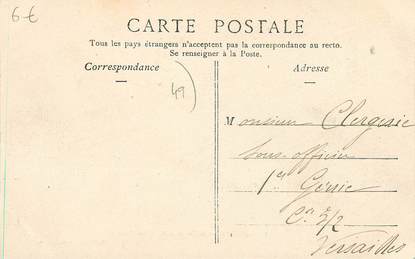 6€
CARTE POSTALE
Tous les pays étrangers n'acceptent pas la correspondance au recto.
Se renseigner à la Poste.
Correspondance
Adresse
49
Monsieur Clergerie
Sous-officier
1er Génie
Cie 5/2
Versailles